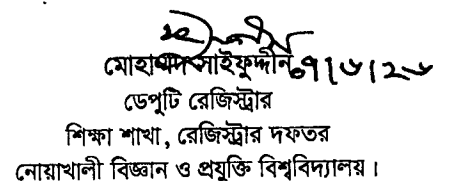 মোহাম্মদ সাইফুদ্দীন
ডেপুটি রেজিস্ট্রার
শিক্ষা শাখা, রেজিস্ট্রার দফতর
নোয়াখালী বিজ্ঞান ও প্রযুক্তি বিশ্ববিদ্যালয়।